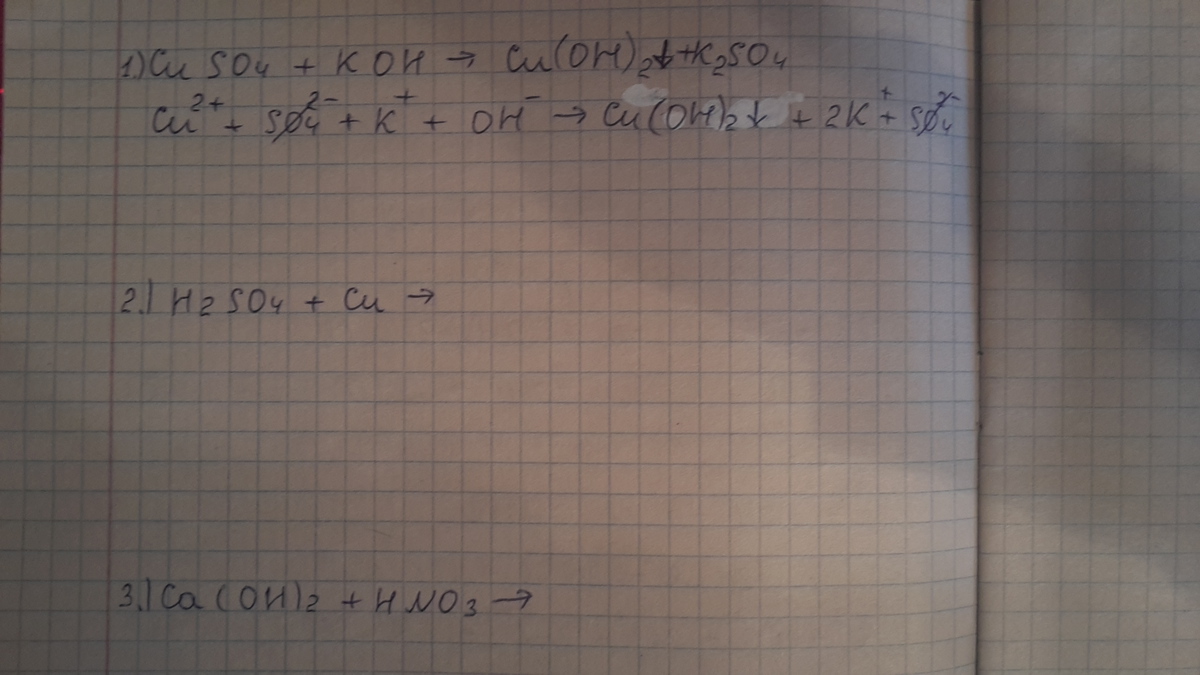 1) CuSO₄ + KOH → Cu(OH)₂↓ + K₂SO₄
Cu²⁺ + SO₄²⁻ + K⁺ + OH⁻ → Cu(OH)₂↓ + 2K⁺ + SO₄²⁻
2.) H₂SO₄ + Cu →
3.) Ca(OH)₂ + HNO₃ →